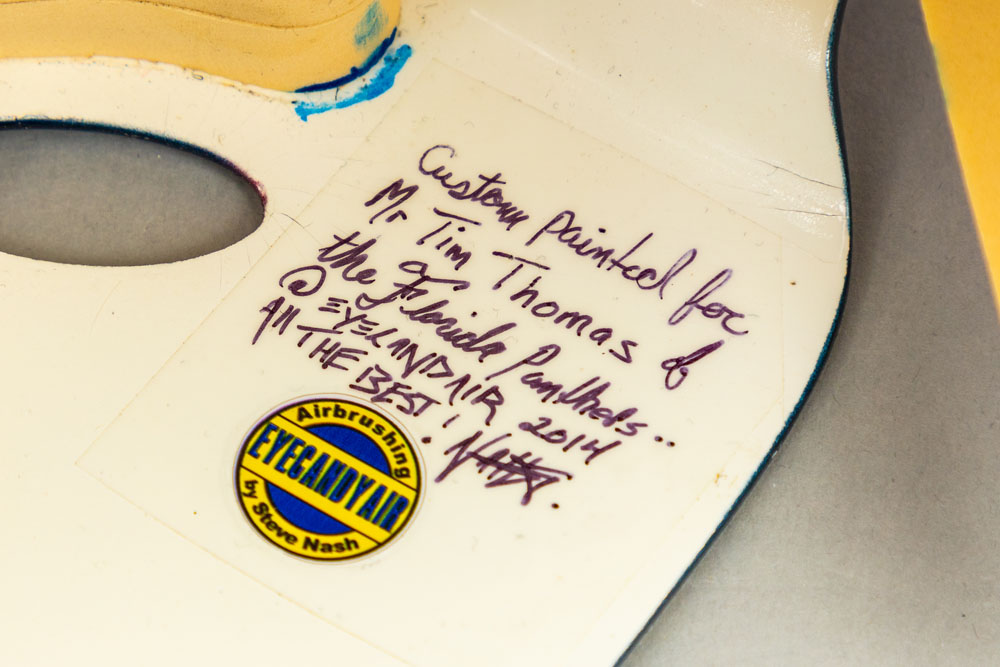 Custom painted for
Mr Tim Thomas of
the Florida Panthers..
@ EYECANDYAIR 2014
All THE BEST!
Airbrushing
EYECANDYAIR
by Steve Nash